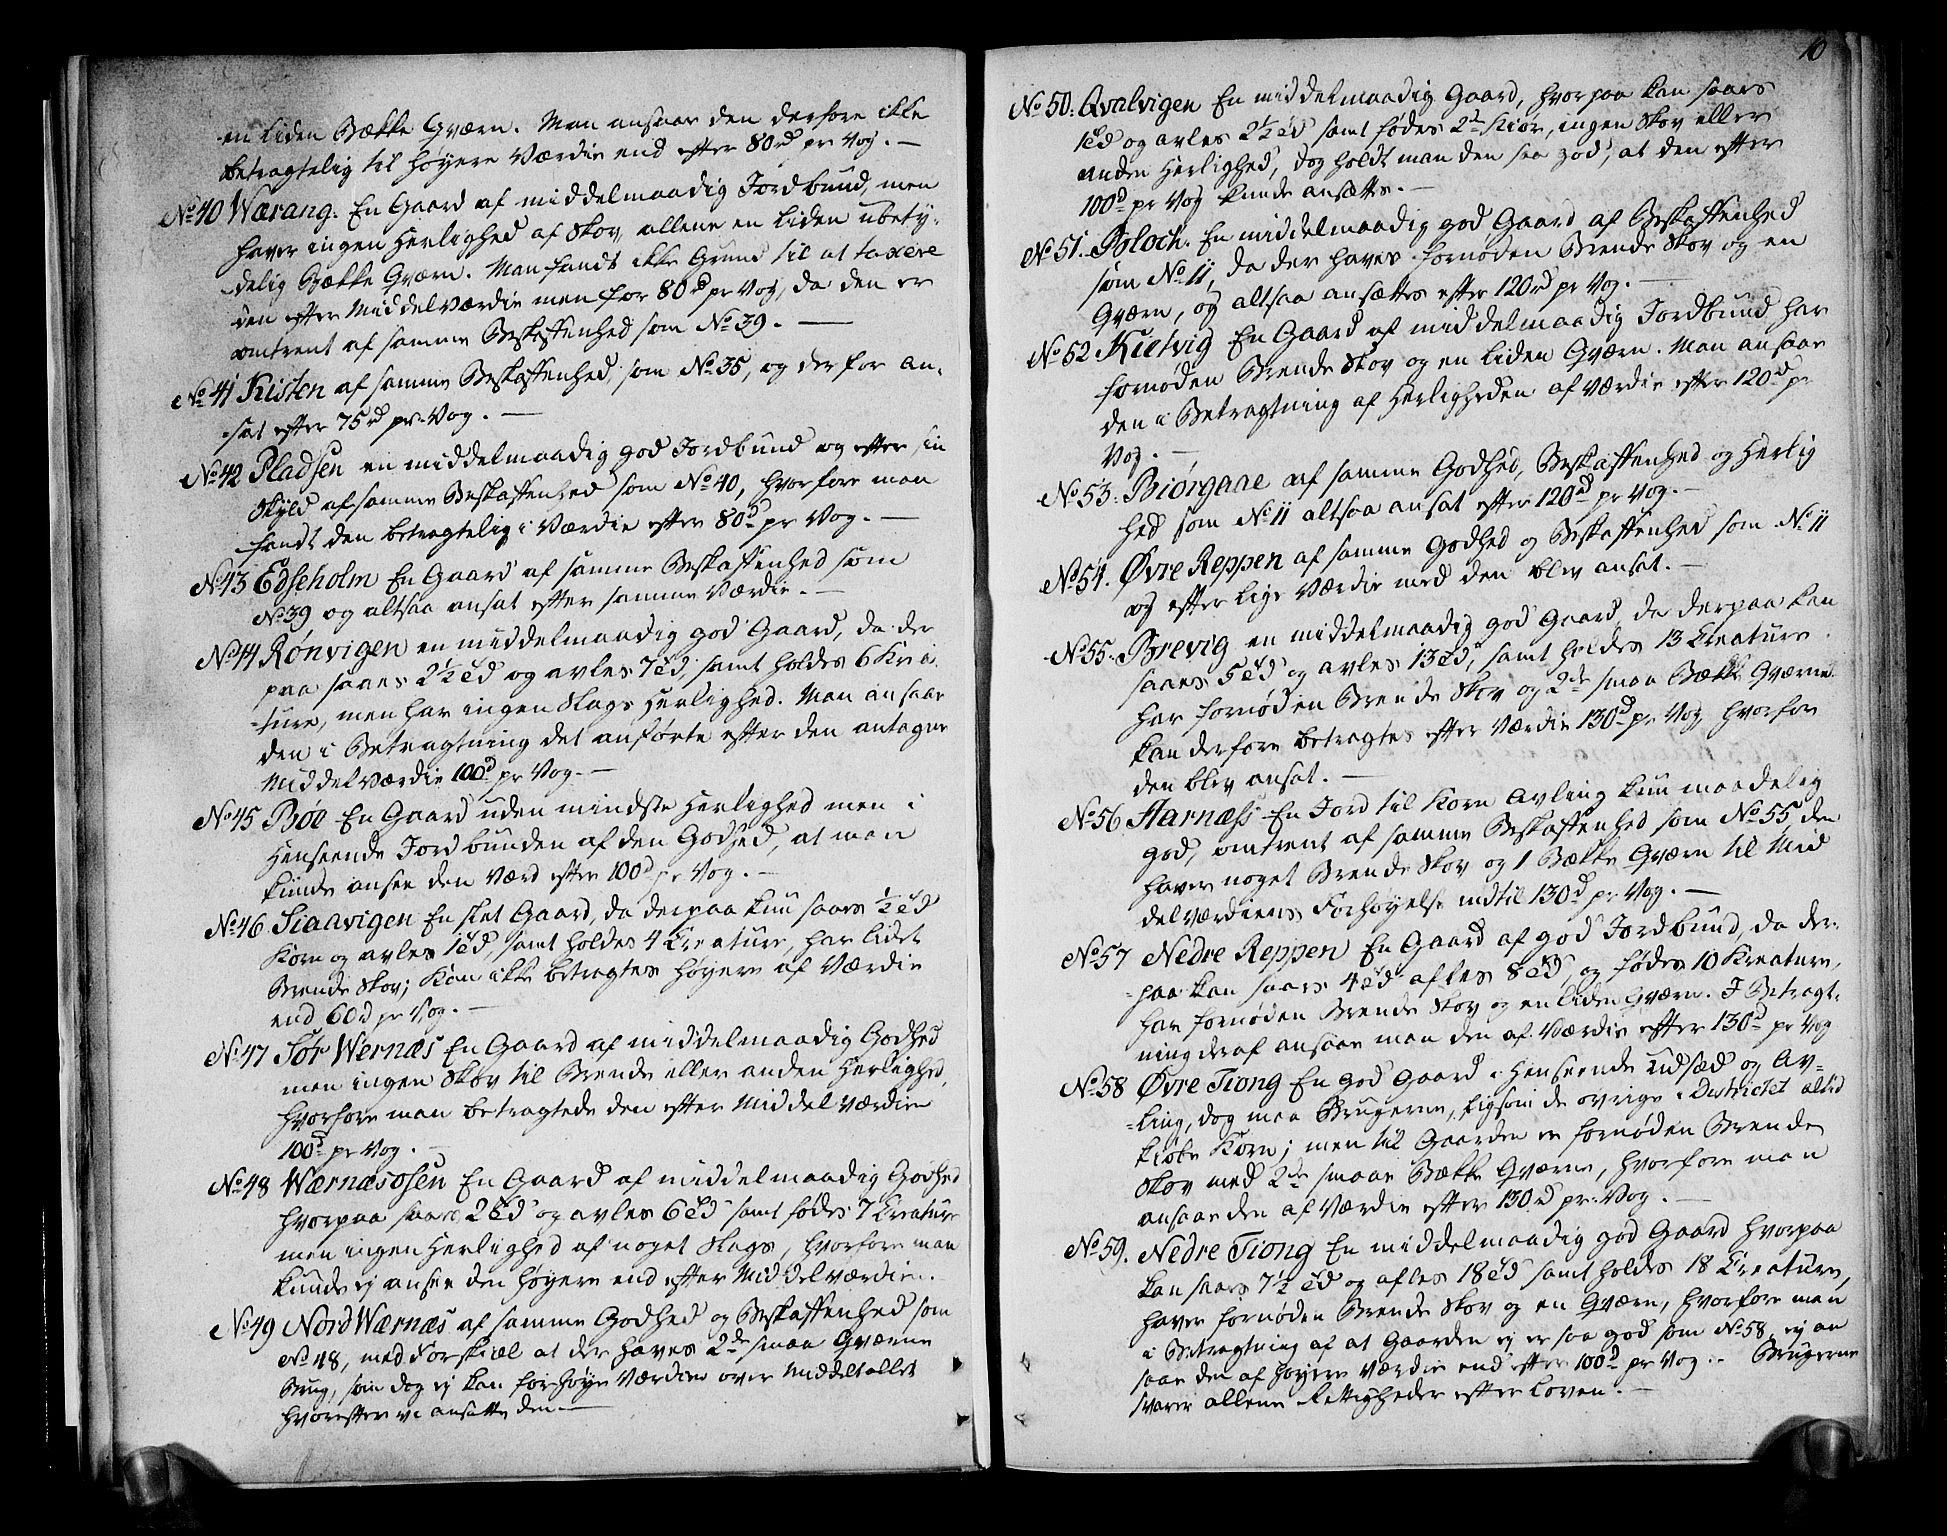 en liden Bække Qværn. Man ansaae den derfore ikke
betragtelig til høyere Værdie end efter 80rd pr Vog. —
No 40 Wærang. En Gaard af middelmaadig Jordbund, men
haver ingen Herlighed af Skov, allene en liden ubety-
delig Bække Qværn. Man fandt ikke Grund til at taxere
den efter Middelværdie men for 80rd pr Vog, da den er
omtrent af samme Beskaffenhed som No 39. —
No 41 Kisten af samme Beskaffenhed, som No 35, og derfor an-
sat efter 75rd pr Vog. —
No 42 Pladsen en middelmaadig god Jordbund og efter sin
Skyld af samme Beskaffenhed som No 40, hvorfore man
fandt den betragtelig i Værdie efter 80rd pr Vog. —
No 43 Edseholm En Gaard af samme Beskaffenhed som
No 39 og altsaa ansat efter samme Værdie. —
No 44 Rønvigen en middelmaadig god Gaard, da der
paa saaes 2½ Td og avles 7 Td, samt holdes 6 Krea-
ture, men har ingen Slags Herlighed. Man ansaae
den i Betragtning det anførte efter den antagne
Middelværdie 100rd pr Vog. —
No 45 Bøe En Gaard uden mindste Herlighed men i
Henseende Jordbunden af den Godhed, at man
kunde ansee den værd efter 100rd pr Vog. —
No 46 Siaavigen En slet Gaard, da derpaa kuu saaes ½ Td
Korn og avles 1 Td, samt holdes 4 Creature, har lidet
Brende Skov; Kan ikke betragtes høyere af Værdie
end 60rd pr Vog. —
No 47 Sør Wernæs En Gaard af middelmaadig Godhed
men ingen Skov til Brende eller anden Herlighed,
hvorfore man betragtede den efter Middelværdien
100rd pr Vog. —
No 48 Wærnæsosen En Gaard af middelmaadig Godhed
hvorpaa saaes 2 Td og avles 6 Td samt fødes 7 Creature
men ingen Herlighed af noget Slags, hvorfore man
kunde ej ansee den høyere end efter Middelværdien.
No 49 Nord Wærnæs af samme Godhed og Beskaffenhed som
No 48, med Forskiæl at der haves 2de smaa Qværne
Brug, som dog ej kan forhøye Værdien over Middeltallet
hvorefter vi ansatte den. —
10
No 50. Qvalvigen En middelmaadig Gaard, hvorpaa kan saaes
1 Td og avles 2½ Td samt fødes 2de Kiør, ingen Skov eller
anden Herlighed, dog holdt man den saa god, at den efter
100rd pr Vog kunde ansættes. —
No 51. Bloch. En middelmaadig god Gaard af Beskaffenhed
som No 11, da der haves fornøden Brende Skov og en
Qværn, og altsaa ansættes efter 120rd pr Vog. —
No 52 Kielvig En Gaard af middelmaadig Jordbund har
fornøden Brende Skov og en liden Qværn. Man ansaae
den i Betragtning af Herligheden af Værdie efter 120rd pr
Vog. —
No 53. Biørgaae af samme Godhed, Beskaffenhed og Herlig
hed som No 11 altsaa ansat efter 120rd pr Vog. —
No 54. Øvre Reppen af samme Godhed og Beskaffenhed som No 11
og efter lige Værdie med den blev ansat. —
No 55. Brevig en middelmaadig god Gaard, da derpaa kan
saaes 5 Td og avles 13 Td, samt holdes 13 Creature.
har fornøden Brende Skov og 2de smaa Bække Qværne.
kan derfore betragtes efter Værdie 130rd pr Vog, hvorfor
den blev ansat. —
No 56 Harnæss En Jord til Korn Avling kuu maadelig
god, omtrent af samme Beskaffenhed som No 55 den
haver noget Brende Skov og 1 Bække Qværn til Mid
delværdiens Forhøyelse indtil 130rd pr Vog. —
No 57 Nedre Reppen En Gaard af god Jordbund, da der-
paa kan saaes 4 Td afles 8 Td, og fødes 10 Kreature,
har fornøden Brende Skov og en liden Qværn. I Betragt-
ning deraf ansaae man den af Værdie efter 130rd pr Vog
No 58 Øvre Tiong En god Gaard i Henseende Udsæd og Av-
ling, dog maa Brugerne, ligsom de øvrige i Districtet altid
kiøbe Korn; men til Gaarden er fornøden Brende
Skov med 2de smaae Bække Qværne, hvorfore man
ansaae den af Værdie efter 130rd pr Vog. —
No 59. Nedre Tiong En middelmaadig god Gaard hvorpaa
kan saaes 7½ Td og afles 18 Td samt holdes 18 Creature,
haver fornøden Brende Skov og en Qværn, hvorfore man
i Betragtning af at Gaarden ej er saa god som No 58, ej an
saae den af høyere Værdie end efter 100rd pr Vog. – Brugerne
svarer allene Rettigheder efter Loven. —